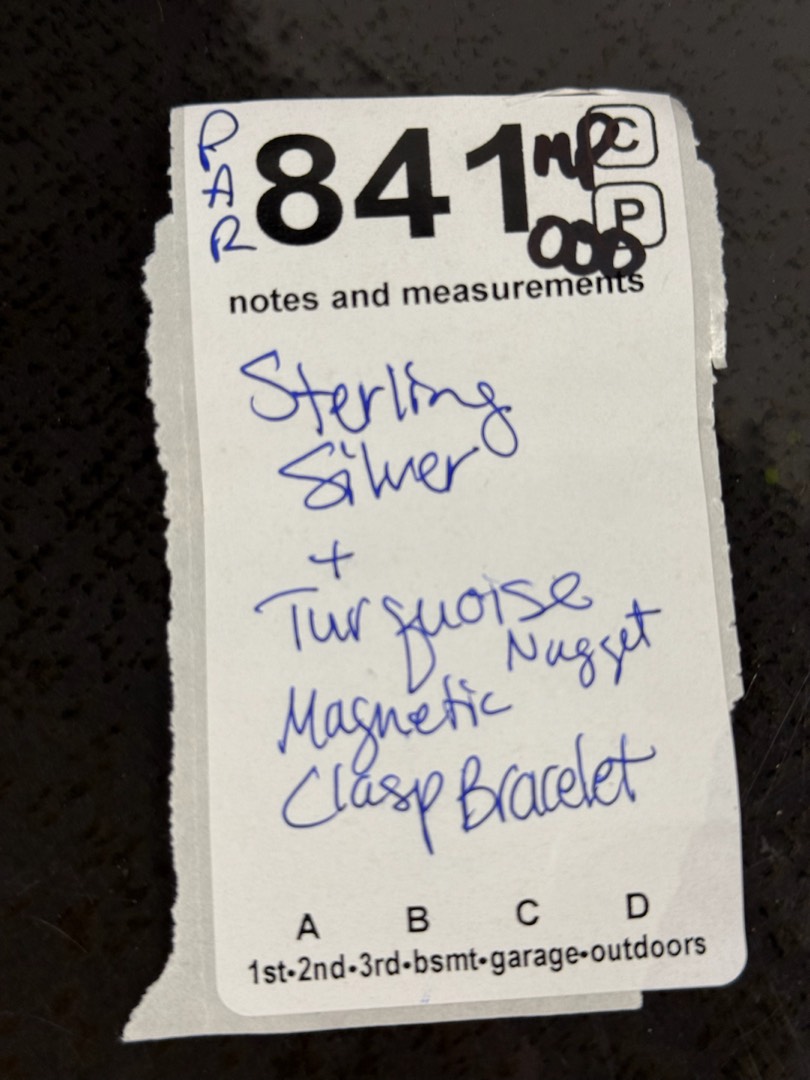 PAR
841 MP C
000 P
notes and measurements
Sterling
Silver
+
Turquoise
Nugget
Magnetic
Clasp Bracelet
A B C D
1st•2nd•3rd•bsmt•garage•outdoors